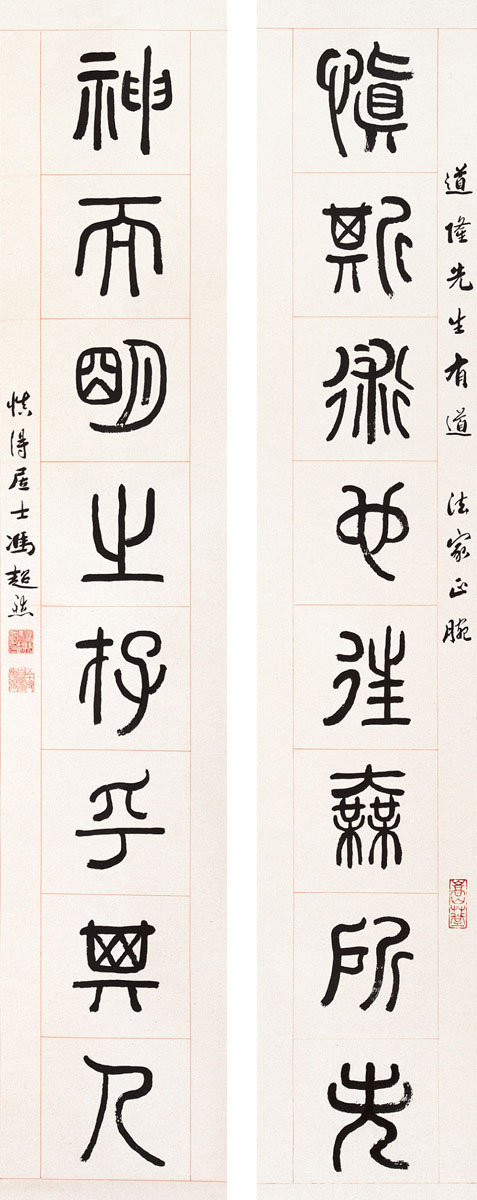 道隆先生有道 法家正腕
慎斯術也往無所失
神而明之存乎其人
慎得居士馮超然